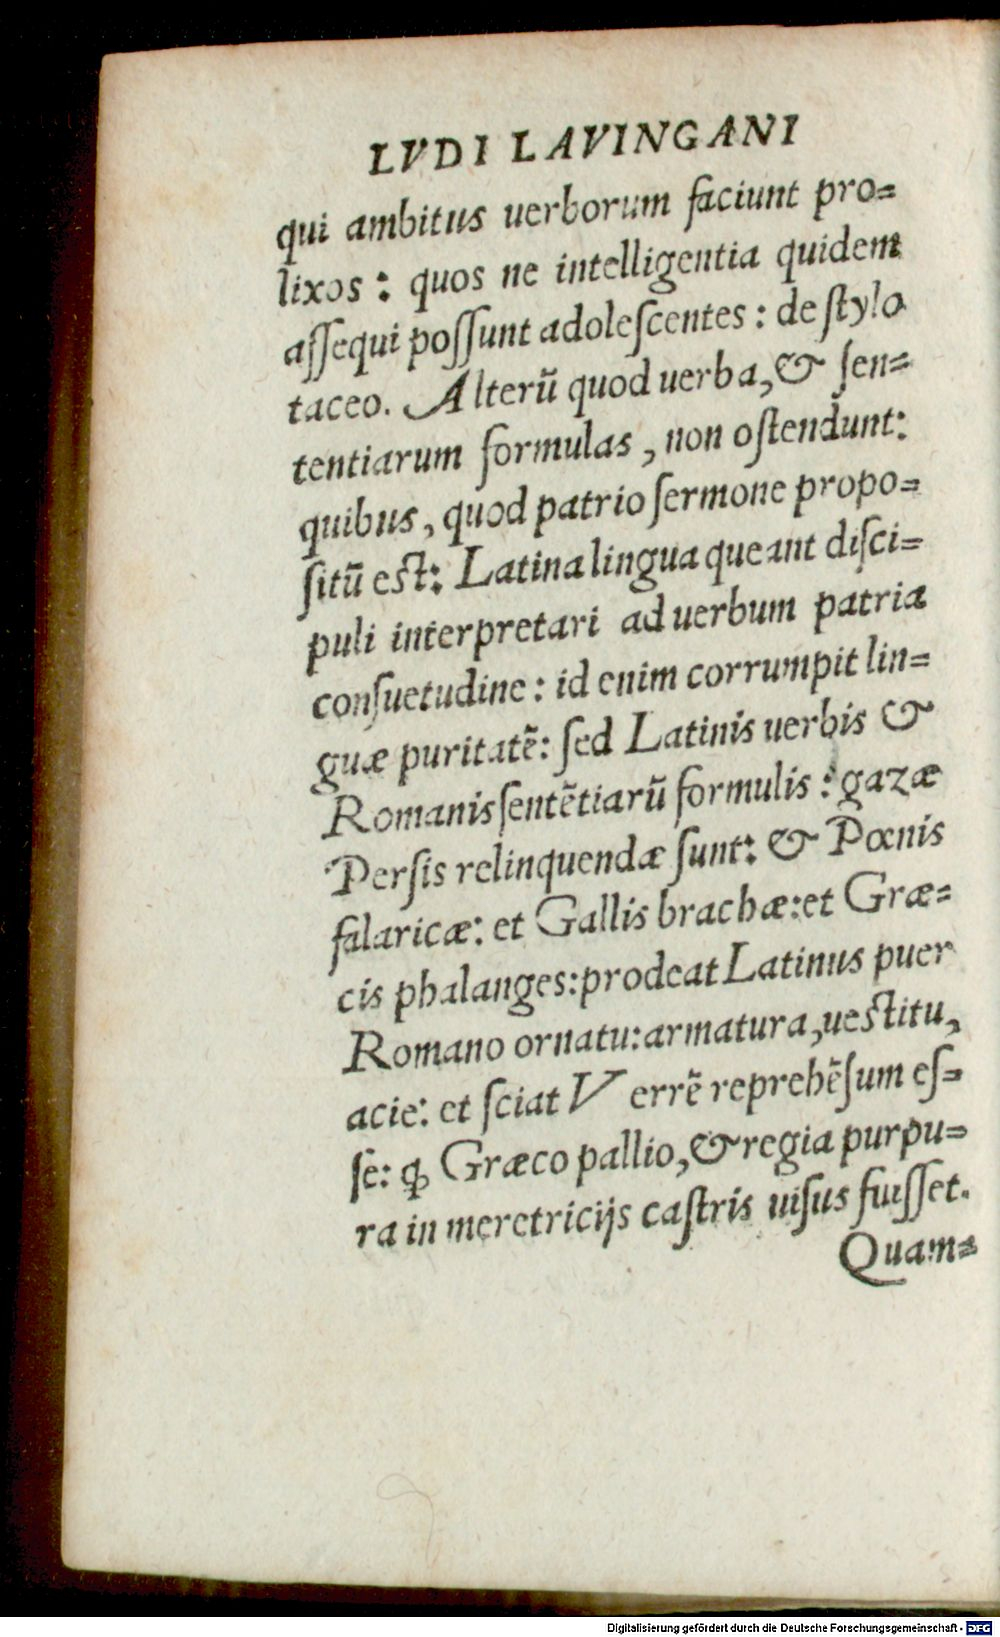 LVDI LAVINGANI
qui ambitus uerborum faciunt pro=
lixos: quos ne intelligentia quidem
aſſequi poſſunt adoleſcentes: de ſtylo
taceo. Alterū quod uerba, & ſen=
tentiarum formulas, non oſtendunt:
quibus, quod patrio ſermone propo=
ſitū est: Latina lingua queant diſci=
puli interpretari ad uerbum patria
conſuetudine: id enim corrumpit lin=
guæ puritatē: ſed Latinis uerbis &
Romanis ſentētiarū formulis: gazæ
Perſis relinquendæ ſunt: & Pœnis
falaricæ: et Gallis brachæ: et Græ=
cis phalanges: prodeat Latinus puer
Romano ornatu: armatura, uestitu,
acie: et ſciat Verrē reprehēſum eſ=
ſe: ꝙ Græco pallio, & regia purpu=
ra in meretricijs caſtris uiſus fuiſſet.
Quam=
Digitalisierung gefördert durch die Deutsche Forschungsgemeinschaft - DFG